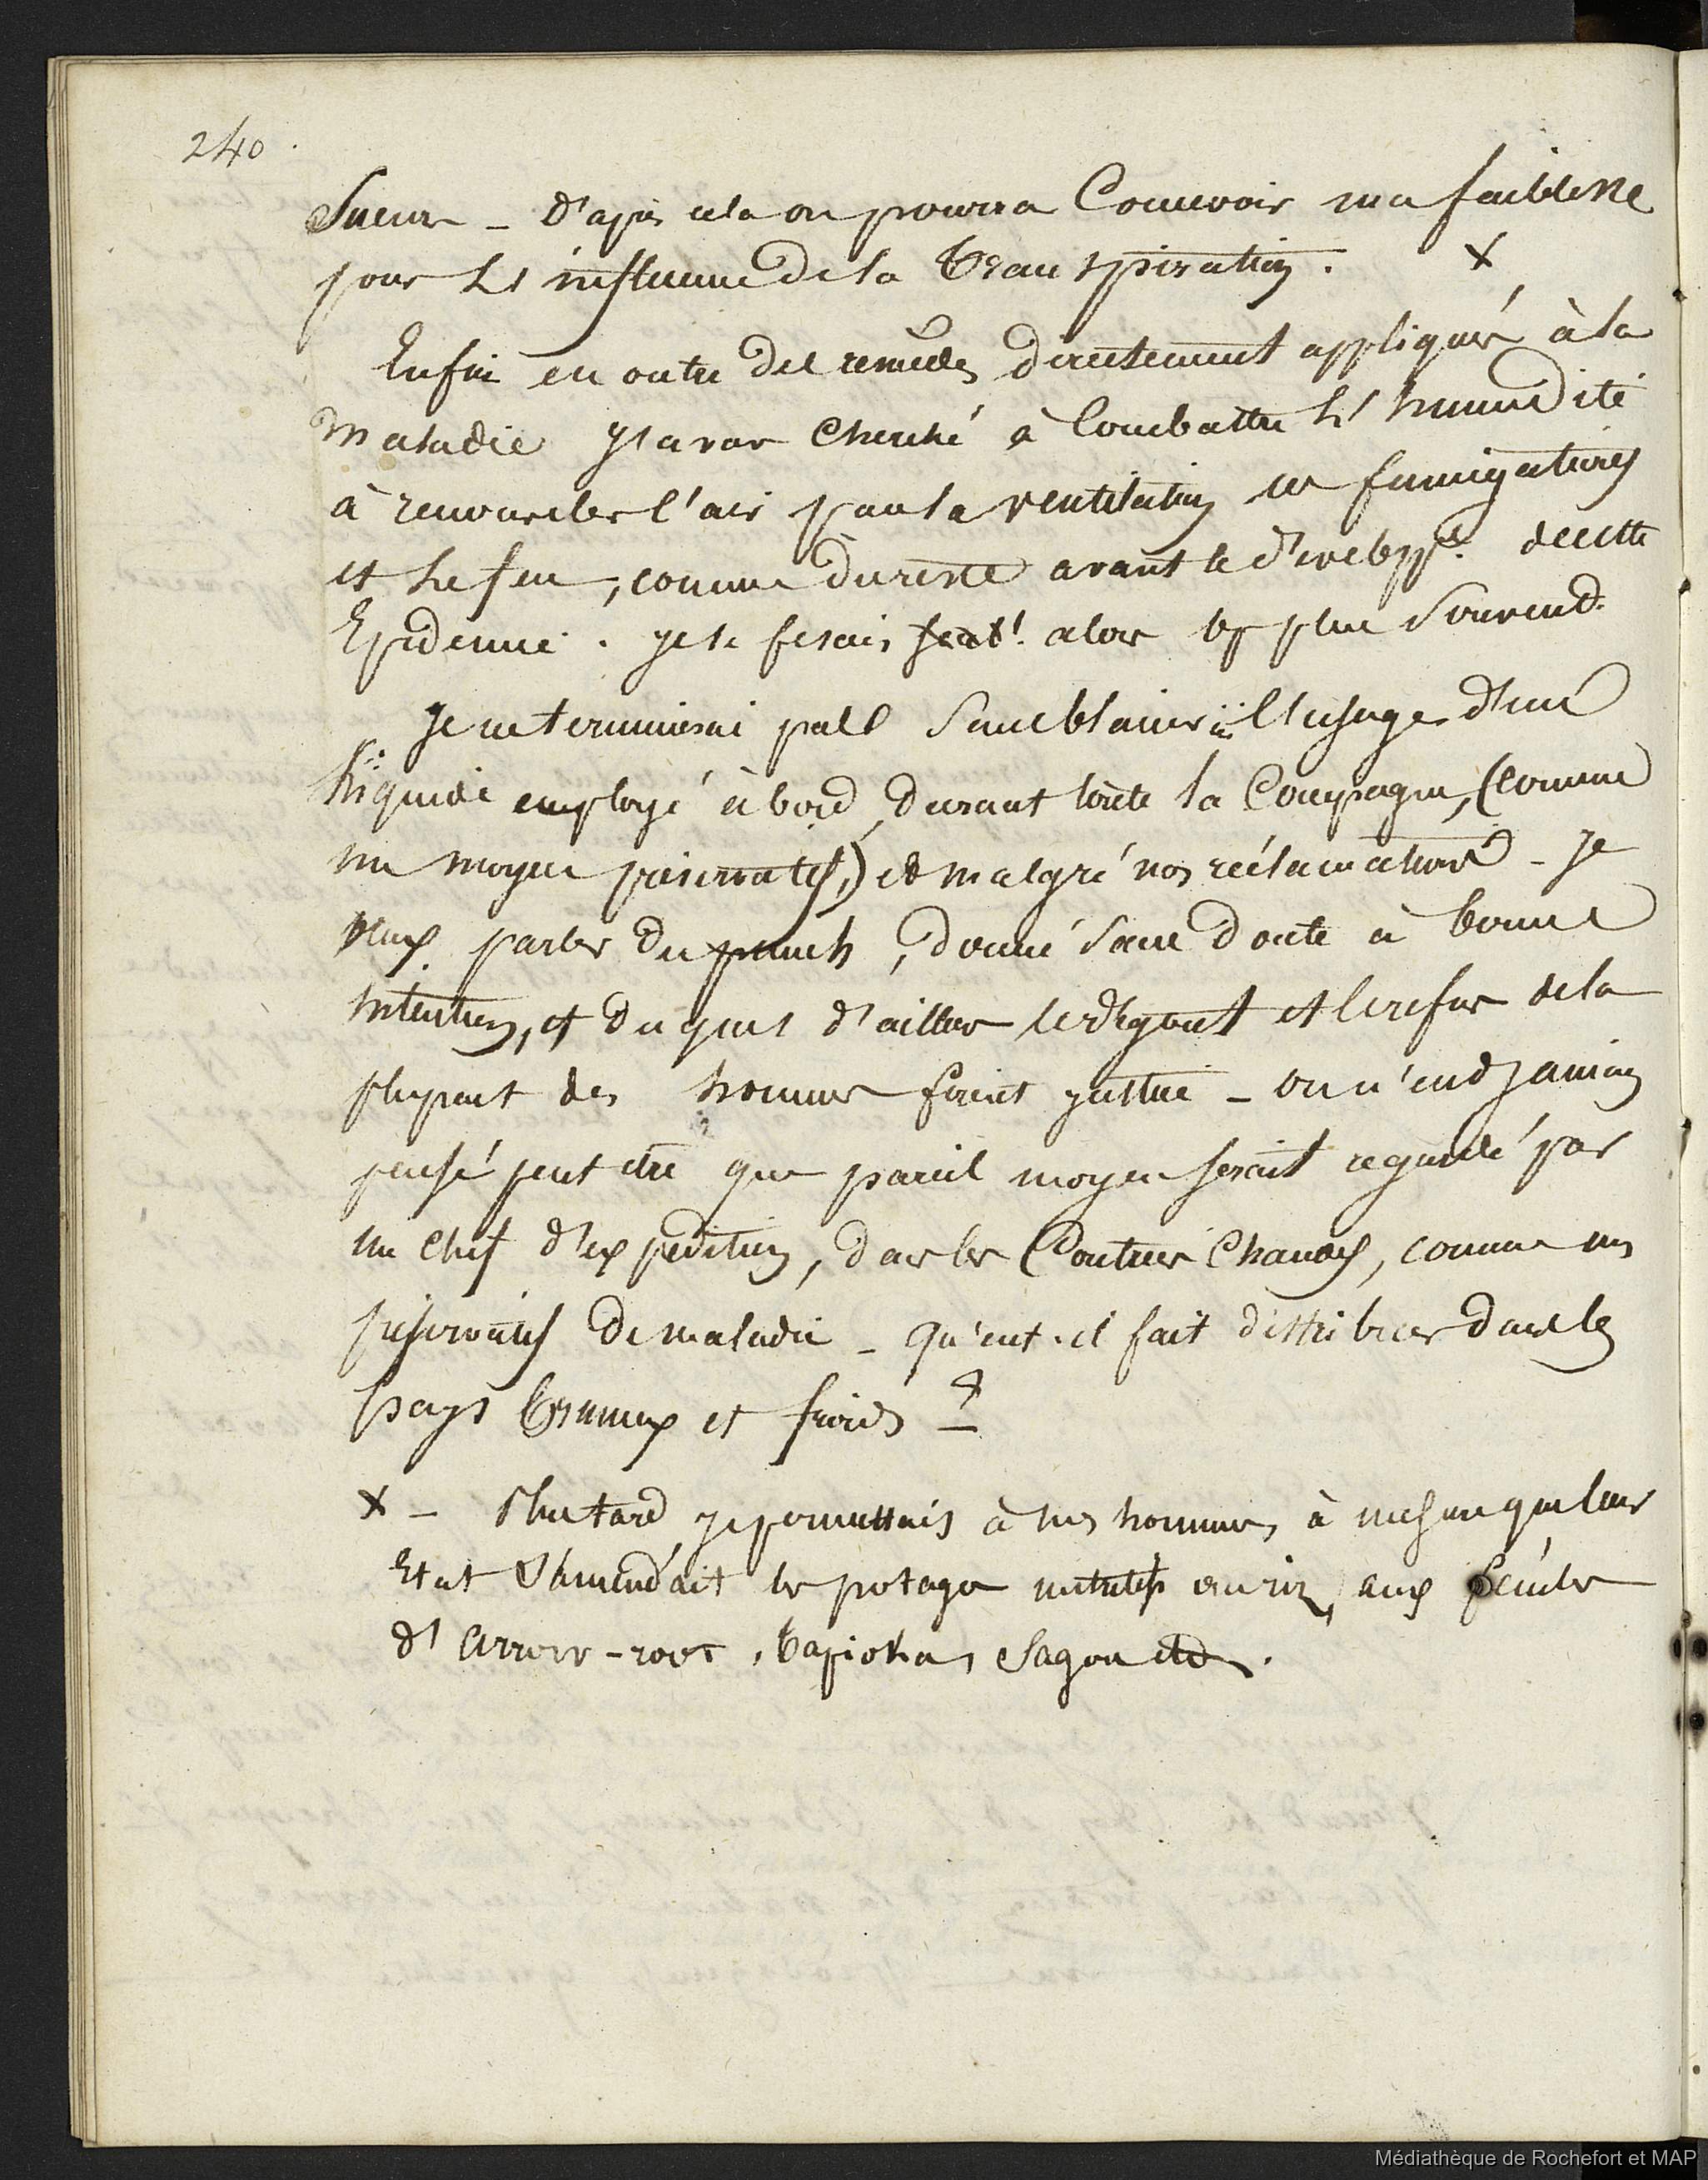 240.
Sueur – d'après cela on pourra Concevoir ma faiblesse
pour l'influence de la transpiration. X
Enfin en outre des remèdes directement appliqués à la
maladie j'avais cherché à Combattre l'humidité
à renouveler l'air par la ventilation les fumigations
et le feu, comme du reste avant le dévelopt. de cette
Epidemie. je le fesais alors plus Souvent.
Je ne terminerai pas Sans blamer l'usage d'un
liquide employé à bord, durant toute la Campagne, (comme
un moyen préservatif,) et malgré nos réclamations – Je
veux parler du punch, donné Sans doute à bonne
intention, et du quel d'ailleurs le dégout et le refus de la
plupart des hommes firent justice – on n'eut jamais
pensé peut etre que pareil moyen serait regardé par
un Chef d'expedition, dans les Contrées Chaudes, comme un
préservatif de maladie – qu'eut-il fait distribuer dans les
pays brumeux et froids ?
X – Plus tard, je permettais à mes hommes, à mesure que leur
Etat S'amendait les potages nutritifs au riz, aux fécules
d'Arrow-root, tapioka, Sagou etc.
Médiathèque de Rochefort et MAP